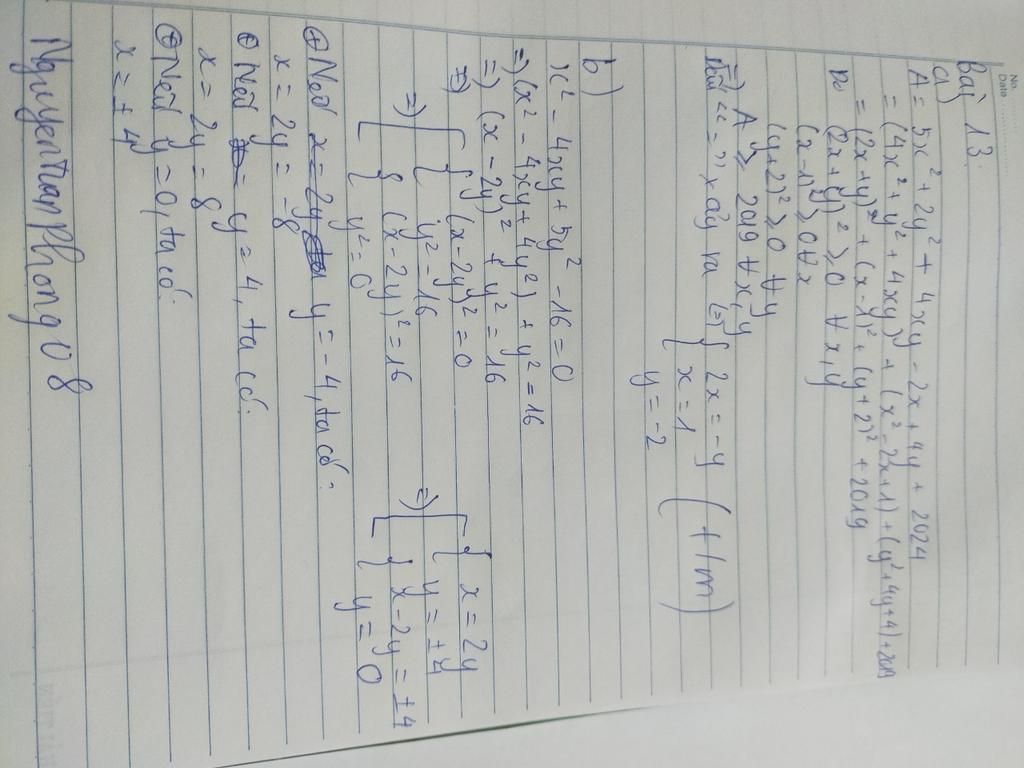 No.
Date
Bài 13:
a)
A = 5x² + 2y² + 4xy - 2x + 4y + 2024
= (4x² + y² + 4xy) + (x² - 2x + 1) + (y² + 4y + 4) + 2019
= (2x + y)² + (x - 1)² + (y + 2)² + 2019
Do (2x + y)² ≥ 0 ∀ x, y
(x - 1)² ≥ 0 ∀ x
(y + 2)² ≥ 0 ∀ y
=) A ≥ 2019 ∀ x, y
"=" xảy ra (=) { 2x = -y
x = 1 (t/m)
y = -2
b)
x² - 4xy + 5y² - 16 = 0
=) (x² - 4xy + 4y²) + y² = 16
=) (x - 2y)² + y² = 16
=) [ { (x - 2y)² = 0 [ { x = 2y
y² = 16 =) y = ±4
=) [ { (x - 2y)² = 16 [ { x - 2y = ±4
y² = 0 y = 0
⊕ Nếu x = 2y y = -4, ta có:
x = 2y = -8
⊕ Nếu y = 4, ta có:
x = 2y = 8
⊕ Nếu y = 0, ta có:
x = ± 4
Nguyentranphong08